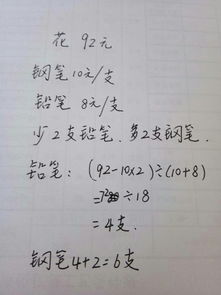 花 92元
钢笔10元/支
铅笔 8元/支
少2支铅笔.多2支钢笔.
铅笔: (92-10×2)÷(10+8)
=72÷18
=4支.
钢笔4+2=6支